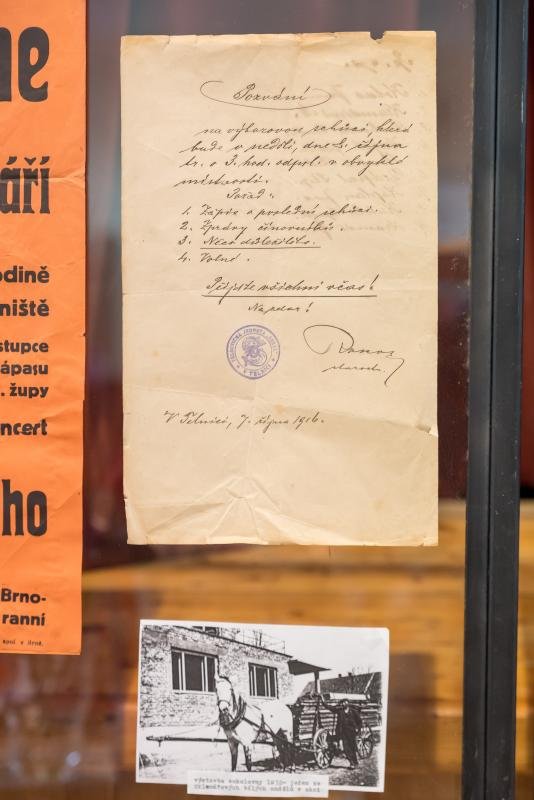 ne
áří
odině
niště
stupce
ápasu
. župy
ncert
ho
Brno-
ranní
spol v Brně.
Pozvání
na výborovou schůzi, která
bude v neděli, dne 8. října
t.r. o 3. hod. odpol. v obvyklé
místnosti.
Pořad:
1. Zápis o poslední schůzi.
2. Zprávy činovníků.
3. Něco důležitého.
4. Volné.
Přijďte všichni včas!
Na zdar!
TĚLOCVIČNÁ JEDNOTA
V TELNICI
starosta.
V Telnici, 7. října 1916.
výstavba sokolovny
v akci